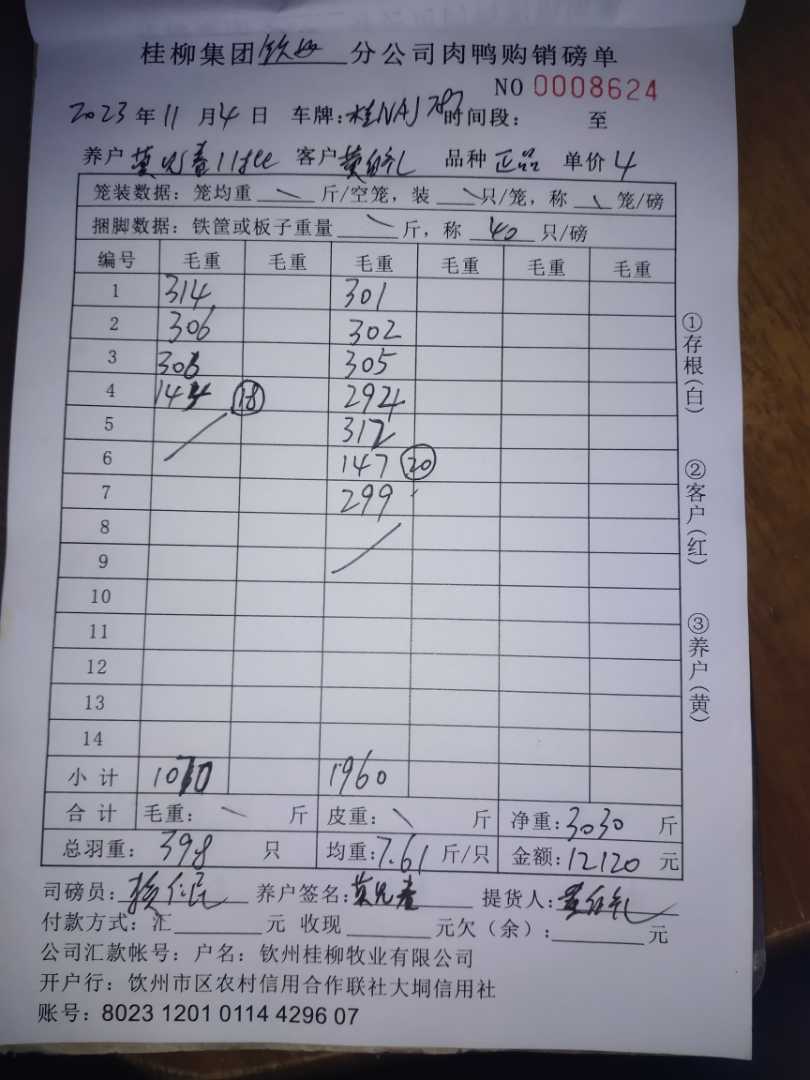 桂柳集团钦州分公司肉鸭购销磅单
NO 0008624
2023年11月4日 车牌:桂NAJ787 时间段: 至
养户 莫兄春 客户 黄 礼 品种 正品 单价 4
笼装数据: 笼均重 \ 斤/空笼, 装 \ 只/笼, 称 \ 笼/磅
捆脚数据: 铁筐或板子重量 \ 斤, 称 40 只/磅
编号 毛重 毛重 毛重 毛重 毛重 毛重
1 314 301
2 306 302
3 306 305
4 144 ⑱ 294
5 312
6 147 ⑳
7 299
8
9
10
11
12
13
14
小计 1070 1960
合计 毛重: \ 斤 皮重: \ 斤 净重:3030 斤
总羽重: 398 只 均重:7.61 斤/只 金额:12120 元
司磅员: 杨仁民 养户签名: 莫兄春 提货人: 黄 礼
付款方式: 汇 元 收现 元欠(余): 元
公司汇款帐号: 户名: 钦州桂柳牧业有限公司
开户行: 钦州市区农村信用合作联社大垌信用社
账号: 8023 1201 0114 4296 07
①存根(白)
②客户(红)
③养户(黄)